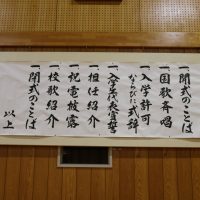 一開式のことば
一国歌斉唱
一入学許可
ならびに式辞
一入学生代表宣誓
一担任紹介
一祝電披露
一校歌紹介
一閉式のことば
以上